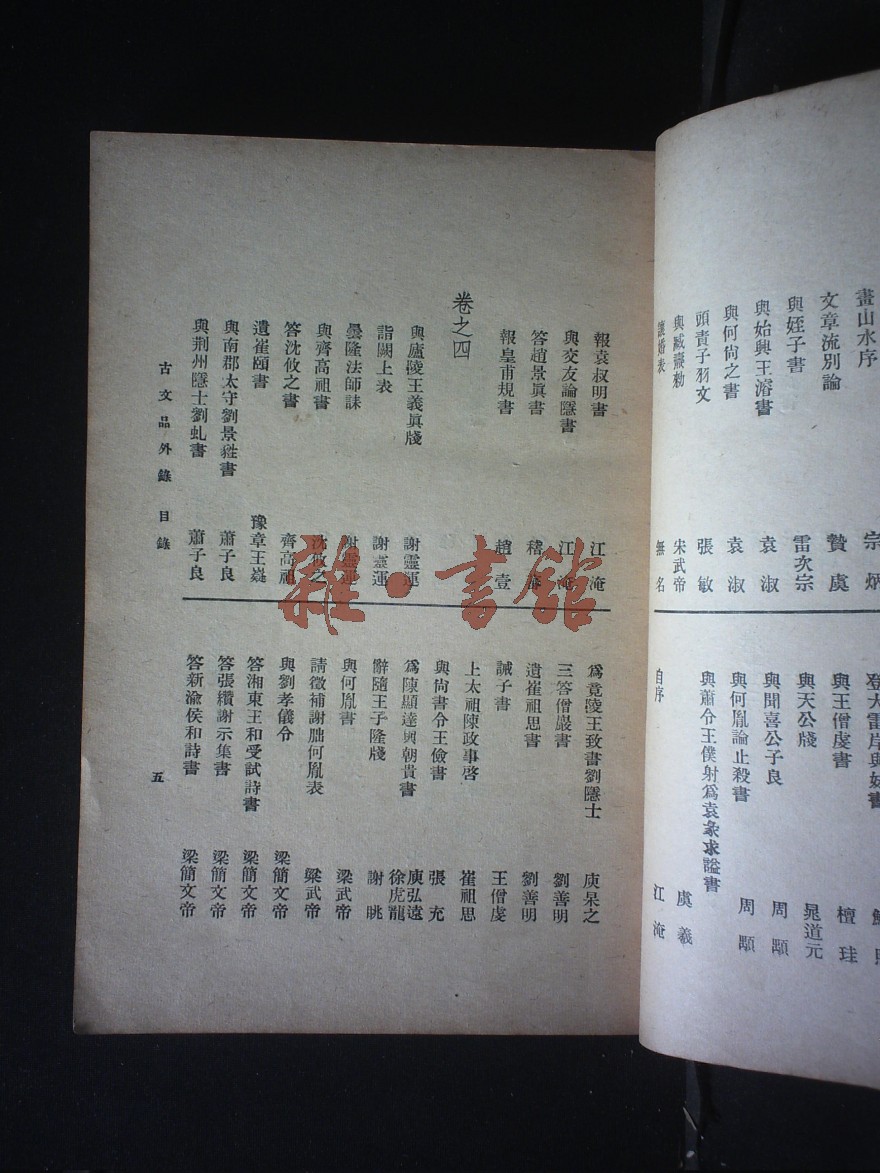 畫山水序 宗炳
文章流別論 贄虞
與姪子書 雷次宗
與始興王濬書 袁淑
與何尙之書 袁淑
頭責子羽文 張敏
與臧燾勑 宋武帝
讓婚表 無名
登大雷岸與妹書
與王僧虔書 檀珪
與天公牋 晁道元
與聞喜公子良 周顒
與何胤論止殺書 周顒
與蕭令王僕射爲袁彖求謚書 虞羲
自序 江淹
報袁叔明書 江淹
與交友論隱書 江淹
答趙景眞書 嵇蕃
報皇甫規書 趙壹
卷之四
與廬陵王義眞牋 謝靈運
詣闕上表 謝靈運
曇隆法師誄 謝靈運
與齊高祖書 沈攸之
答沈攸之書 齊高祖
遺崔頤書 豫章王嶷
與南郡太守劉景蕤書 蕭子良
與荆州隱士劉虬書 蕭子良
爲竟陵王致書劉隱士 庾杲之
三答僧巖書 劉善明
遺崔祖思書 劉善明
誡子書 王僧虔
上太祖陳政事啓 崔祖思
與尙書令王儉書 張充
爲陳顯達與朝貴書 庾弘遠 徐虎龍
辭隨王子隆牋 謝眺
與何胤書 梁武帝
請徵補謝朏何胤表 梁武帝
與劉孝儀令 梁簡文帝
答湘東王和受試詩書 梁簡文帝
答張纘謝示集書 梁簡文帝
答新渝侯和詩書 梁簡文帝
古文品外錄 目錄
五
雜·書館